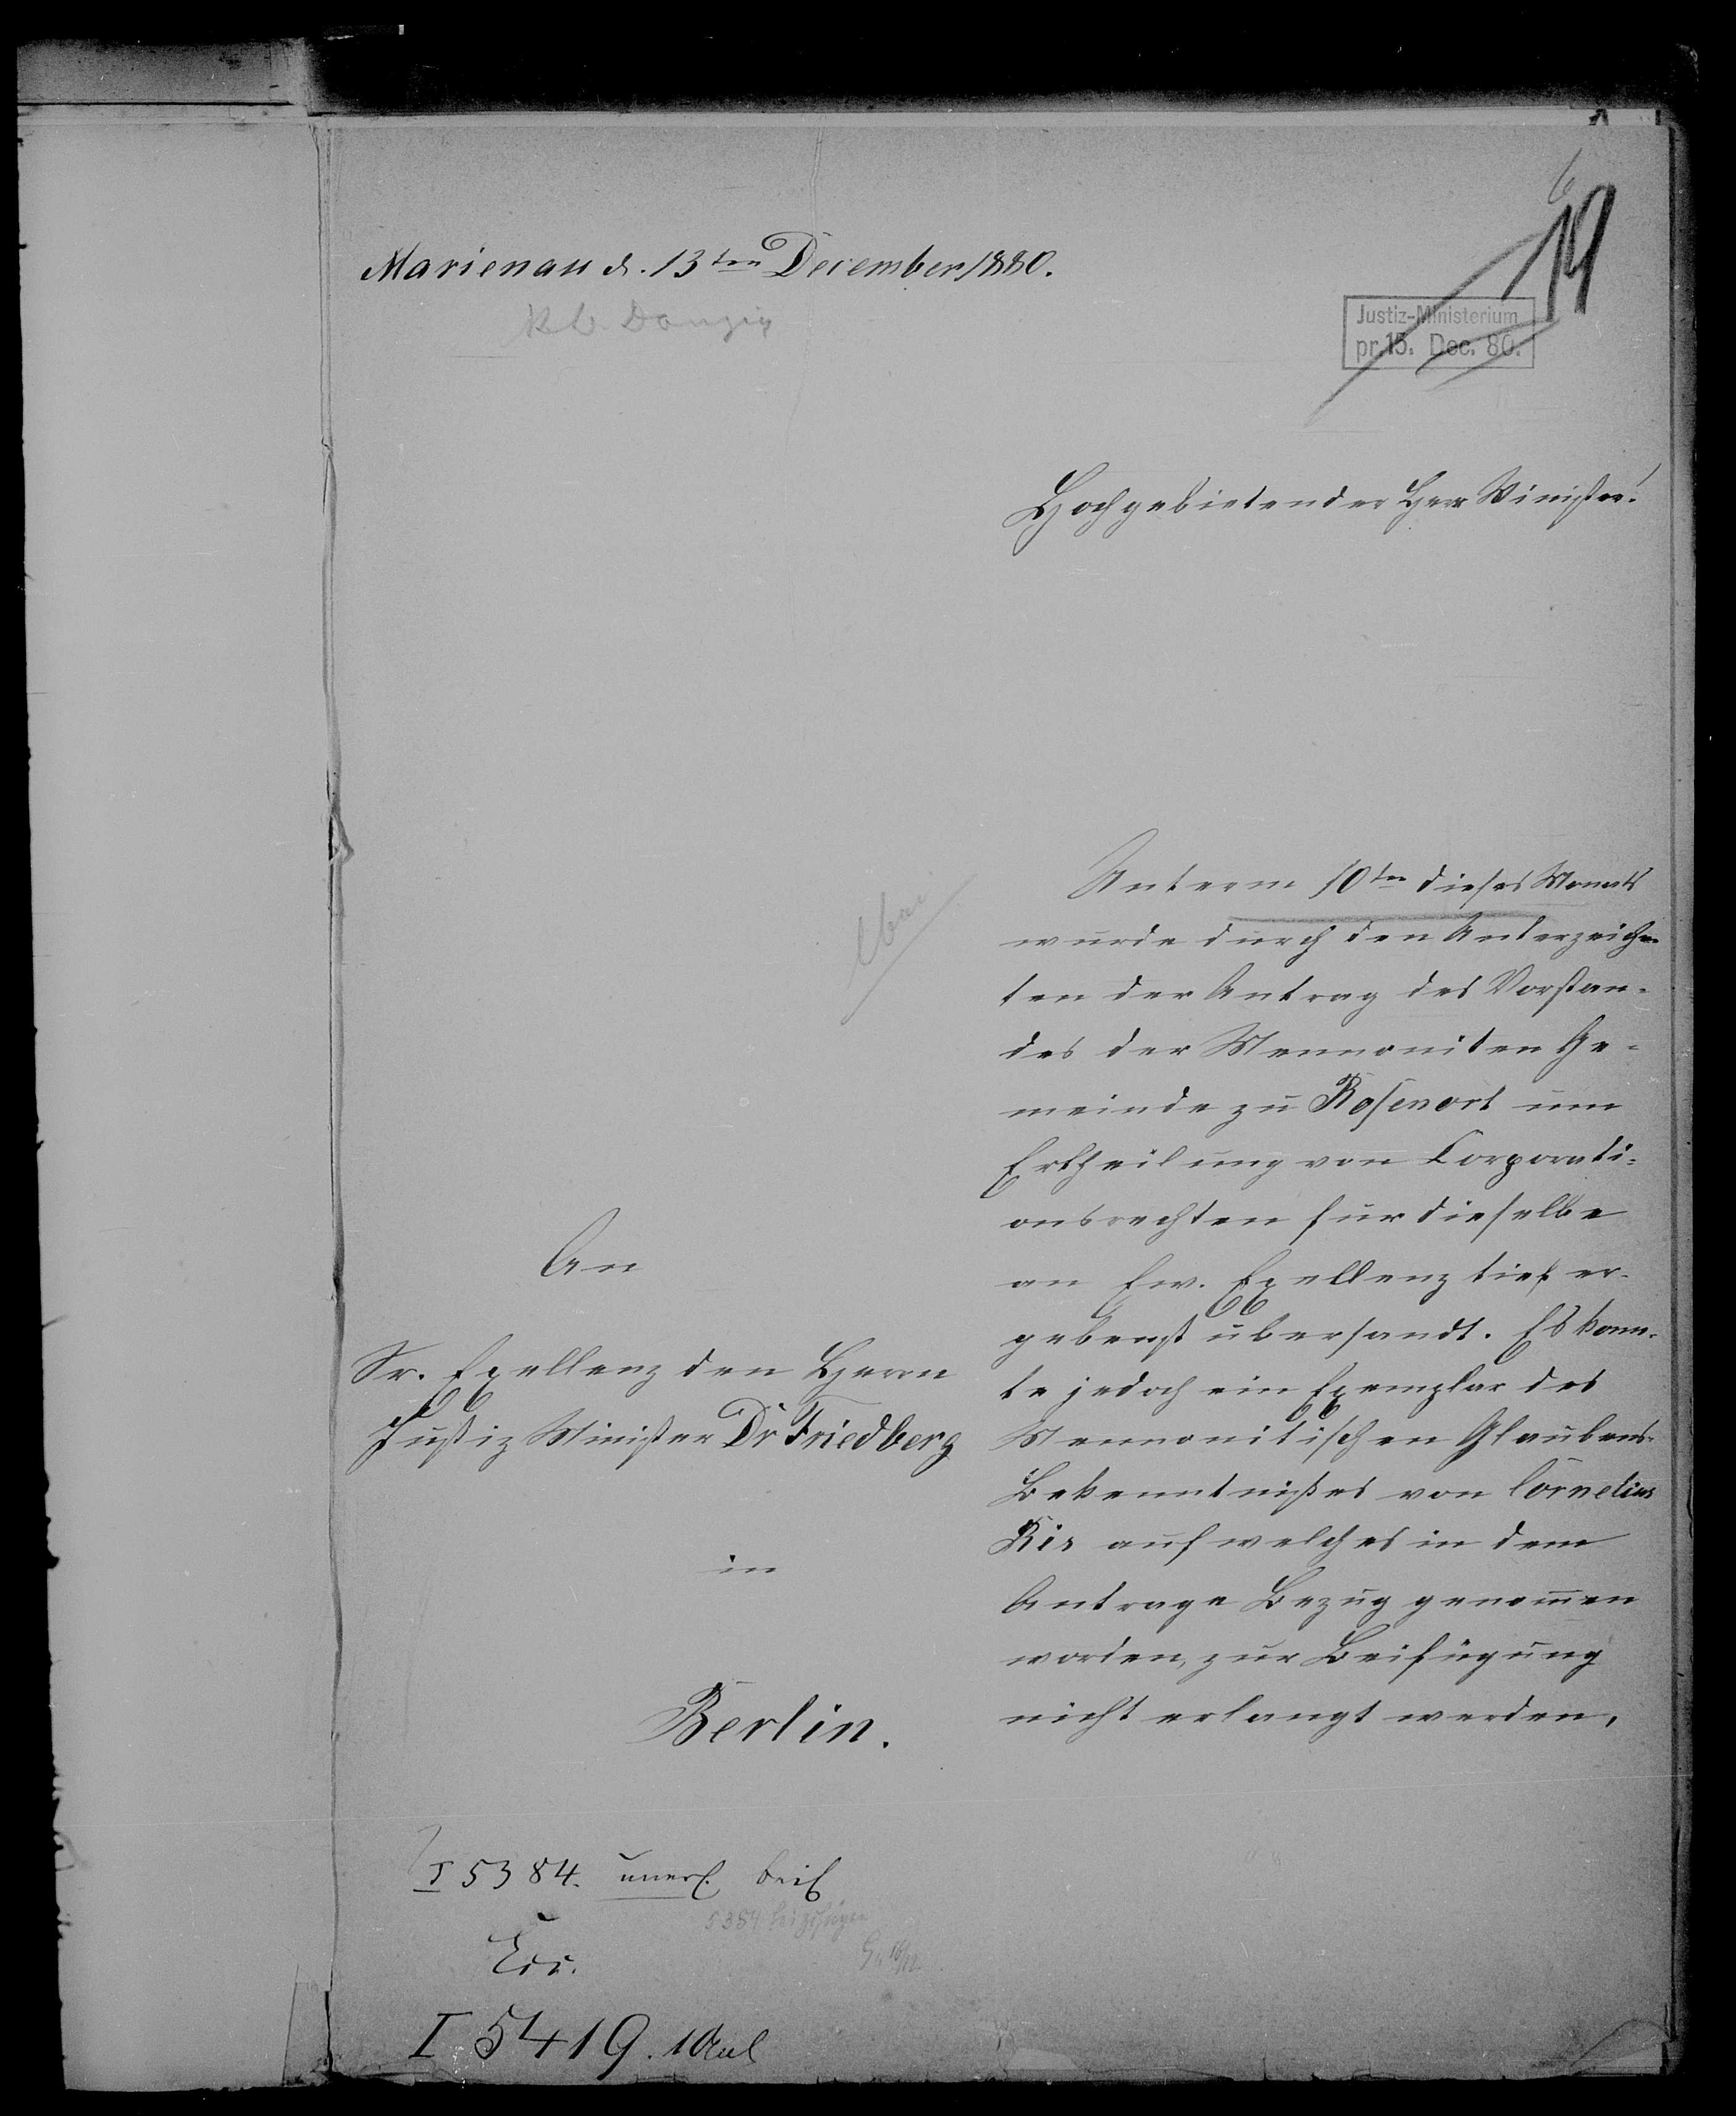 6
19
Marienau d. 13ten December 1880.
R. b. Danzig
Justiz-Ministerium
pr. 15. Dec. 80.
Hochgebietender Herr Minister!
Unterm 10ten dieses Monats
wurde durch den Unterzeichne-
ten der Antrag des Vorstan-
des der Mennoniten Ge-
meinde zu Rosenort um
Ertheilung von Corporati-
onsrechten für dieselbe
an Ew. Exellenz tief er-
gebenst übersandt. Es konn-
te jedoch ein Exemplar des
Mennonitischen Glaubens-
Bekenntnißes von Cornelius
Ris auf welches in dem
Antrage Bezug genomen
worden, zur Beifügung
nicht erlangt werden,
An
Sr. Exellenz den Herrn
Justiz Minister Dr Friedberg
in
Berlin.
I 5384. beif
5384 beizufügen
16/12
I 5419. 1 Anl